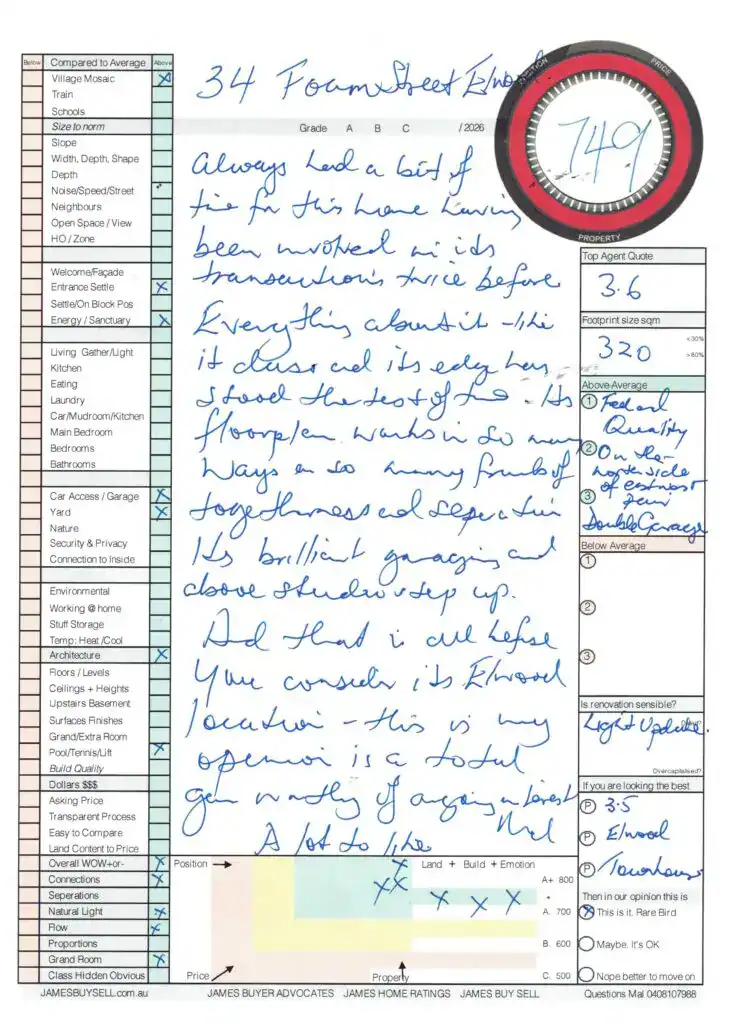 Below Compared to Average Above
Village Mosaic
Train
Schools
Size to norm
Slope
Width, Depth, Shape
Depth
Noise/Speed/Street
Neighbours
Open Space / View
HO / Zone
Welcome/Façade
Entrance Settle
Settle/On Block Pos
Energy / Sanctuary
Living Gather/Light
Kitchen
Eating
Laundry
Car/Mudroom/Kitchen
Main Bedroom
Bedrooms
Bathrooms
Car Access / Garage
Yard
Nature
Security & Privacy
Connection to Inside
Environmental
Working @ home
Stuff Storage
Temp: Heat /Cool
Architecture
Floors / Levels
Ceilings + Heights
Upstairs Basement
Surfaces Finishes
Grand/Extra Room
Pool/Tennis/Lift
Build Quality
Dollars $$$
Asking Price
Transparent Process
Easy to Compare
Land Content to Price
Overall WOW+or-
Connections
Seperations
Natural Light
Flow
Proportions
Grand Room
Class Hidden Obvious
34 Foam Street Elwood
Grade A B C / 2026
Always had a bit of
time for this home having
been involved in its
transactions twice before
Everything about it - like
it class and its edge has
stood the test of time. Its
floorplan works in so many
ways on so many fronts of
togetherness and separation
Its brilliant garaging and
above studio step up.
And that is all before
you consider its Elwood
location - this in my
openion is a total
gem worthy of ongoing interest
A lot to like Mal
PRICE
749
PROPERTY
Top Agent Quote
3.6
Footprint size sqm
320
<30%
>80%
Above Average
1 Federal
Quality
2 On the
north side
of east west
3
Double Garage
Below Average
1
2
3
Is renovation sensible?
Light Update.
Overcapitalised?
If you are looking the best
P 3.5
P Elwood
P Townhouse
Then in our opinion this is
This is it. Rare Bird
Maybe. It's OK
Nope better to move on
Position Land + Build + Emotion
A+ 800
A. 700
B. 600
C. 500
Price Property
JAMESBUYSELL.com.au JAMES BUYER ADVOCATES JAMES HOME RATINGS JAMES BUY SELL Questions Mal 0408107988